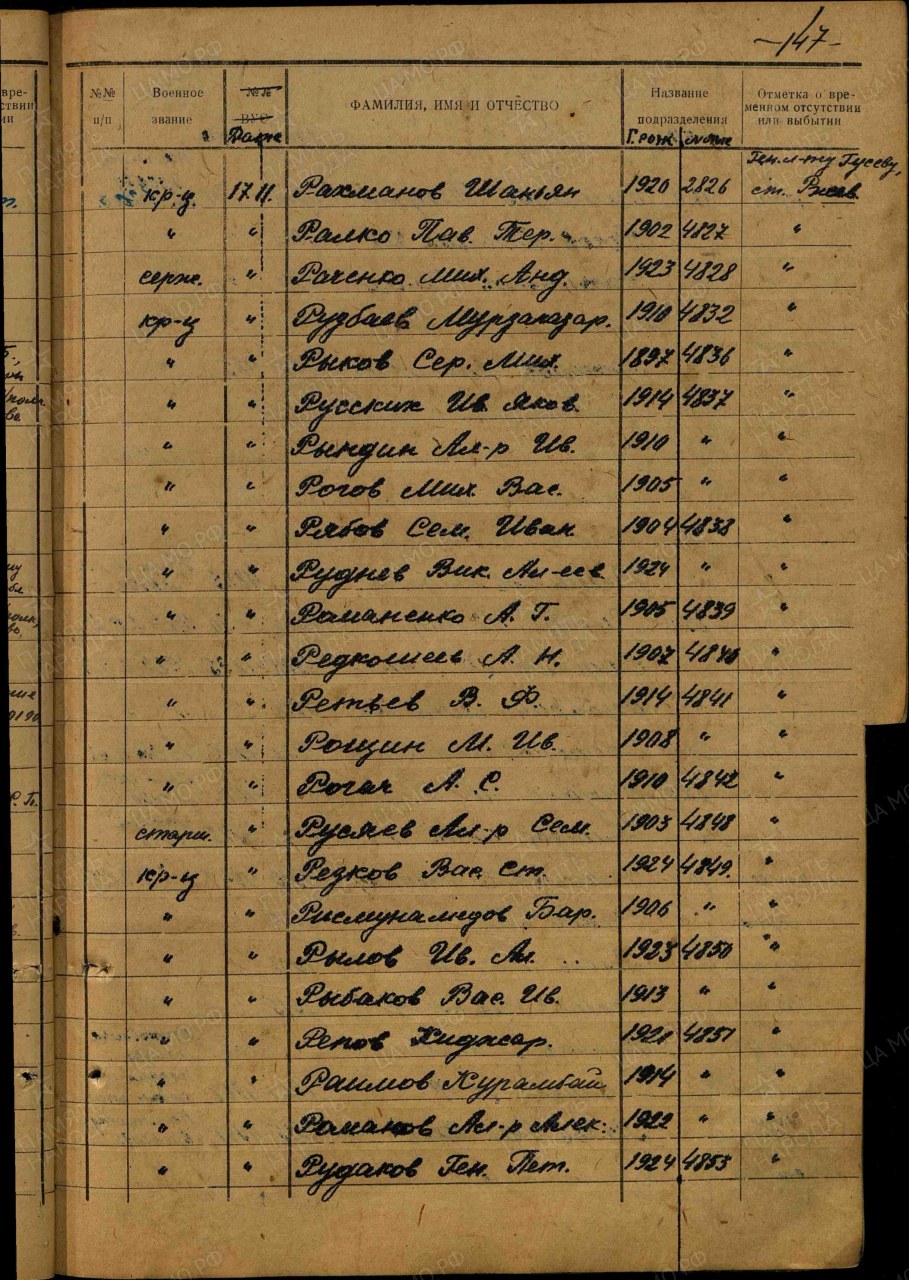 -147-
№№ п/п Военное звание №№ ВУС Дата ФАМИЛИЯ, ИМЯ И ОТЧЕСТВО Название подразделения Г. рож Отметка о временном отсутствии или выбытии
Ген. л-ту Гусеву,
кр-ц. 17.11. Рахманов Шаньян 1920 2826 ст.
" " Ралко Пав. Тер. 1902 4827 "
серж. " Раченко Мих. Анд. 1923 4828 "
кр-ц " Рудбаев 1910 4832 "
" " Рыков Сер. Мих. 1897 4836 "
" " Русских Ив. Яков. 1914 4837 "
" " Рындин Ал-р Ив. 1910 " "
" " Рогов Мих. Вас. 1905 " "
" " Рябов Сем. Иван 1904 4838 "
" " Руднев Вик. Ал-еев 1924 " "
" " Романенко А. Г. 1905 4839 "
" " А. Н. 1907 4840 "
" " Ретьев В. Ф. 1914 4841 "
" " Рощин М. Ив. 1908 " "
" " Рогач А. С. 1910 4842 "
старш. " Русяев Ал-р Сем. 1903 4848 "
кр-ц " Резков Вас. Ст. 1924 4849. "
" " Бар. 1906 " "
" " Рылов Ив. Ал. 1923 4850 "
" " Рыбаков Вас. Ив. 1913 " "
" " Репов Хиджар. 1921 4851 "
" " Раимов Курамбай 1914 " "
" " Романов Ал-р Алек. 1922 " "
" " Рудаков Ген. Пет. 1924 4853 "